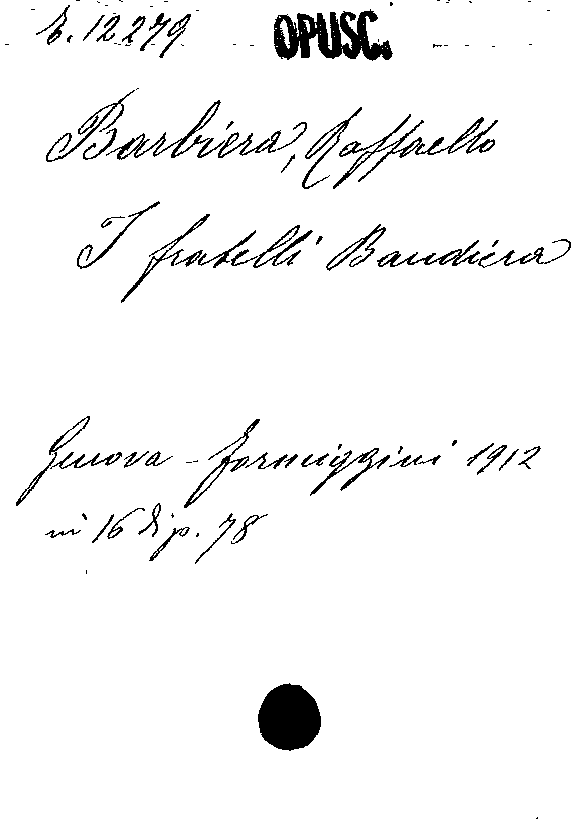 E. 12279 OPUSC.
Barbiera, Raffaello
I fratelli Bandiera
Genova - Formiggini 1912
in 16 di p. 78